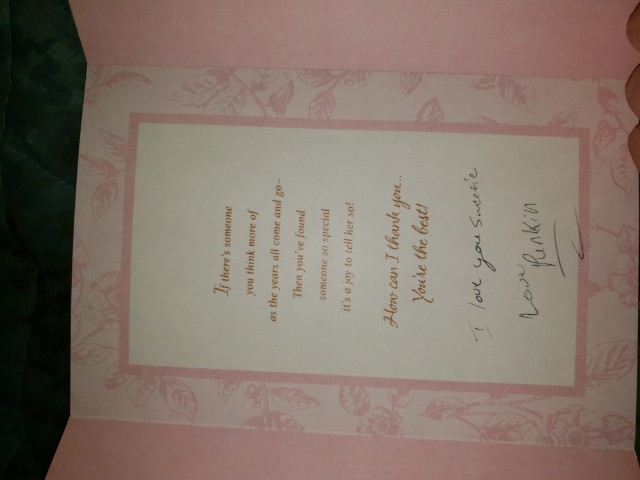 If there's someone
you think more of
as the years all come and go–
Then you've found
someone so special
it's a joy to tell her so!
How can I thank you...
You're the best!
I love you Sweetie
Love,
Punkin